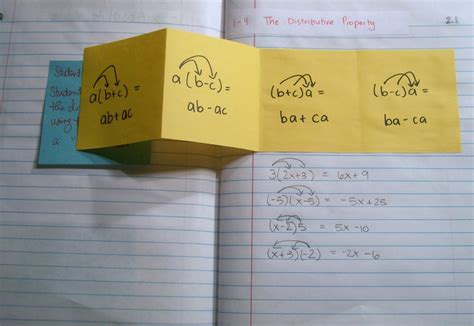 1-4 The Distributive Property
21
Student
Student
the di
using
a
a(b+c) =
ab+ac
a(b-c) =
ab-ac
(b+c)a =
ba+ca
(b-c)a =
ba-ca
3(2x+3) = 6x+9
(-5)(x-5) = -5x+25
(x-2)5 = 5x-10
(x+3)(-2) = -2x-6